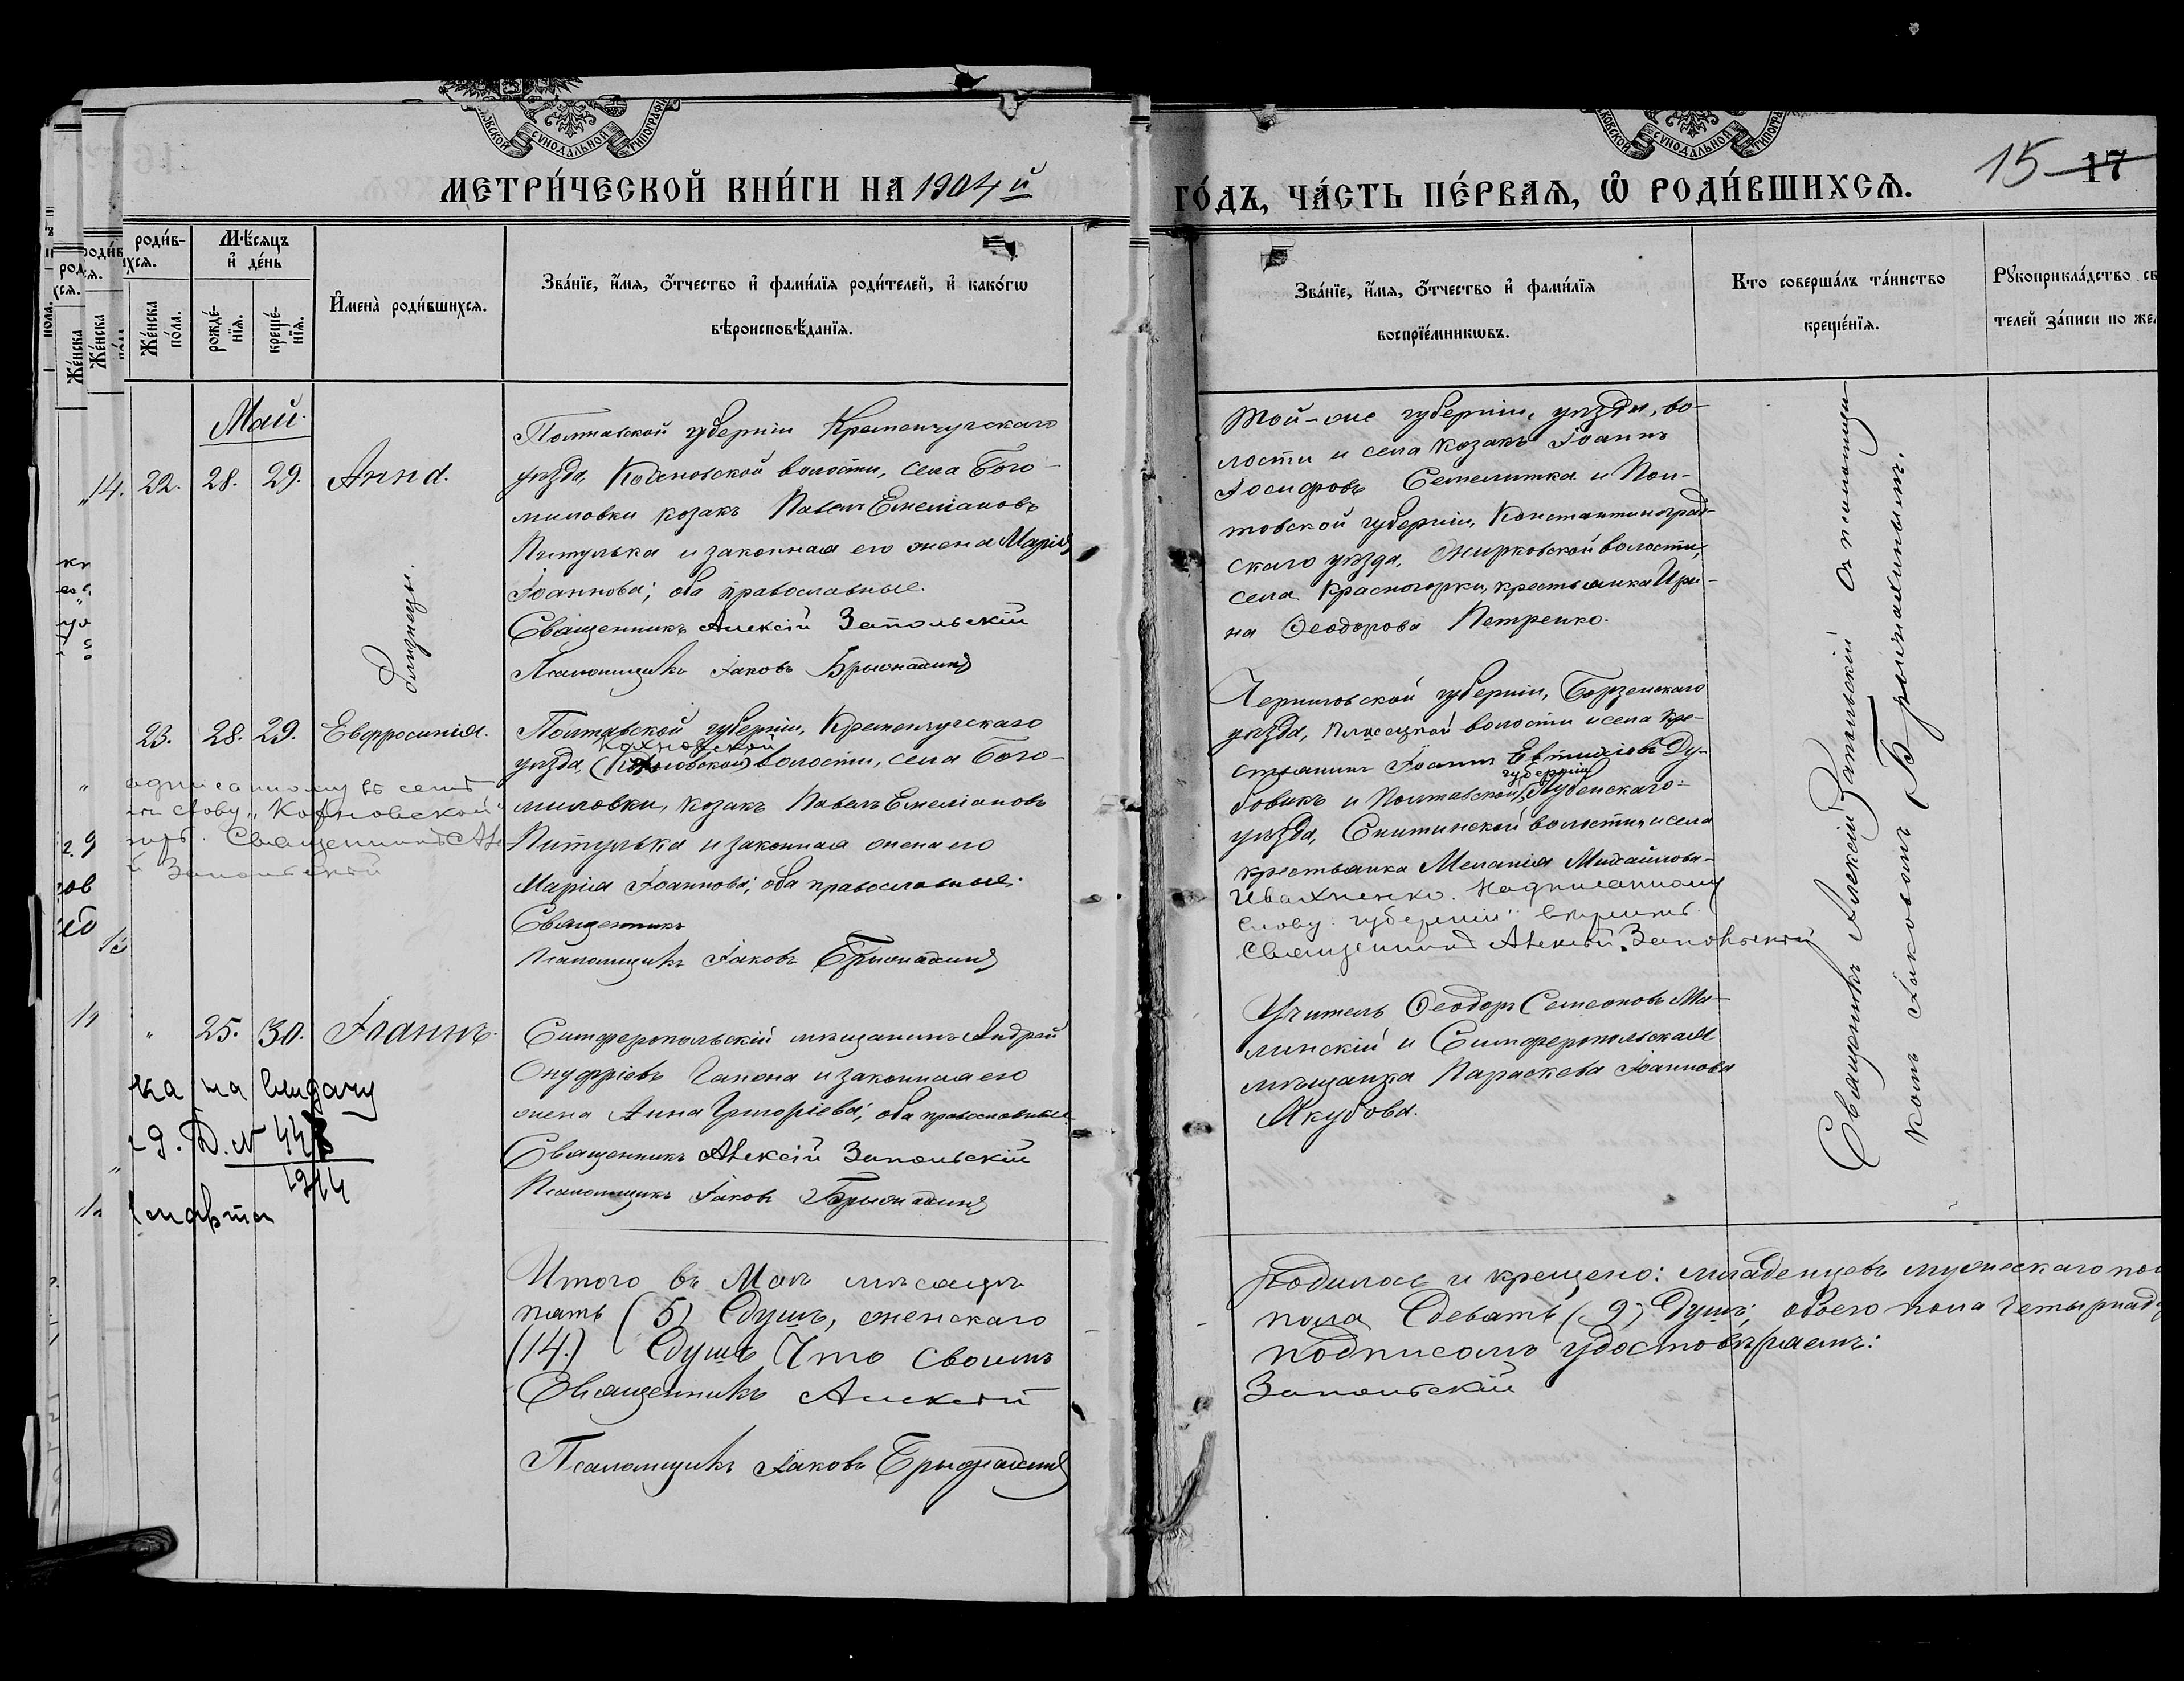 МЕТРИ́ЧЕСКОЙ КНИ́ГИ НА 1904 й
ГО́ДЪ, ЧА́СТЬ ПЕ́РВАѦ, Ѡ РОДИ́ВШИХСѦ.
15 17
роди́в-
хсѧ.
Мѣ́сѧцъ
и҆ де́нь
Же́нска
по́ла.
рожде́-
нїѧ.
креще́-
нїѧ.
И҆мена̀ роди́вшихсѧ.
Зва́нїе, и҆́мѧ, ѻ҆́тчество и҆ фами́лїѧ роди́телей, и҆ како́гѡ
вѣроисповѣ́данїѧ.
Зва́нїе, и҆́мѧ, ѻ҆́тчество и҆ фами́лїѧ
воспрїе́мникѡвъ.
Кто соверша́лъ та́инство
креще́нїѧ.
Рꙋкоприкла́дство св
телей за́писи по жел
Май.
22. 28. 29. Анна.
близнецы.
Полтавской губерніи Кременчугскаго
уѣзда, Кохновской волости, села Бого-
миловки козакъ Павелъ Емеліановъ
Питулька и законная его жена Марія
Іоаннова; оба православные.
Священникъ Алексій Запольскій
Псаломщикъ Іаковъ
Той-же губерніи, уѣзда, во-
лости и села козакъ Іоаннъ
Іосифовъ и Пол-
товской губерніи, Константиноград-
скаго уѣзда, Жирковской волости,
села Красногорки, крестьянка Ири-
на Ѳеодорова Петренко.
23. 28. 29. Евфросинія.
Полтавской губерніи, Кременчугскаго
Кохновской
уѣзда, волости, села Бого-
миловки, козакъ Павелъ Емеліановъ
Питулька и законная жена его
Марія Іоаннова; оба православные.
Священникъ
Псаломщикъ Іаковъ
адписанному въ семъ
слову „Кохновской"
Священникъ Але
й Запольскій
Черниговской губерніи, Борзенскаго
уѣзда, волости и села кре-
стьянинъ Іоаннъ Евтихіевъ Ду-
губерніи
бовикъ и Полтавской, Лубенскаго
уѣзда, Снитинской волости и села
крестьянка Меланія Михайлова
Ивахненко. Надписанному
слову „губерніи" вѣрить.
Священникъ Алексій Запольскій
" 25. 30. Іоаннъ.
Симферопольскій мѣщанинъ Андрей
Онуфріевъ Гапона и законная его
жена Анна Григоріева; оба православные.
Священникъ Алексій Запольскій
Псаломщикъ Іаковъ
Учитель Ѳеодоръ Семеоновъ Ма-
линскій и Симферопольская
мѣщанка Параскева Іоаннова
Якубова.
ка на выдачу
№
1914
марта
Священникъ Алексій Запольскій съ псаломщи-
комъ Іаковомъ
Итого въ Маѣ мѣсяцѣ
пять (5) душъ, женскаго
(14.) душъ Что своимъ
Священникъ Алексій
Псаломщикъ Іаковъ
родилось и крещено: младенцевъ мужескаго пол
пола девять (9) душъ; обоего пола четырнад
подписомъ удостовѣряемъ:
Запольскій